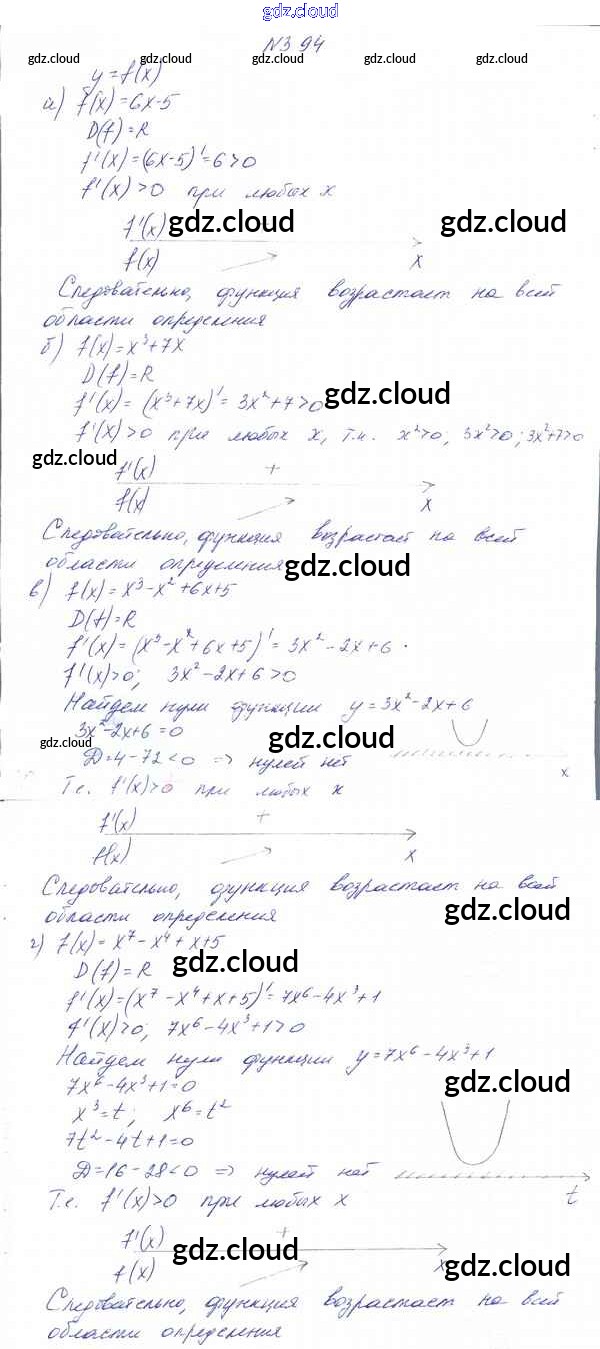 gdz.cloud
N394
gdz.cloud gdz.cloud gdz.cloud gdz.cloud
y=f(x)
а) f(x)=6x-5
D(f)=R
f'(x)=(6x-5)'=6>0
f'(x)>0 при любых x
f'(x) gdz.cloud gdz.cloud
f(x) x
Следовательно, функция возрастает на всей
области определения
б) f(x)=x³+7x
D(f)=R
f'(x)=(x³+7x)'=3x²+7>0 gdz.cloud
f'(x)>0 при любых x, т.к. x²>0; 3x²>0; 3x²+7>0
gdz.cloud f'(x) +
f(x) x
Следовательно, функция возрастает на всей
области определения gdz.cloud
в) f(x)=x³-x²+6x+5
D(f)=R
f'(x)=(x³-x²+6x+5)'=3x²-2x+6.
f'(x)>0; 3x²-2x+6>0
Найдем нули функции y=3x²-2x+6
3x²-2x+6=0
gdz.cloud Д=4-72<0 => нулей нет gdz.cloud
x
Т.е. f'(x)>0 при любых x
f'(x) +
f(x) x
Следовательно, функция возрастает на всей
области определения gdz.cloud
г) f(x)=x⁷-x⁴+x+5
D(f)=R gdz.cloud
f'(x)=(x⁷-x⁴+x+5)'=7x⁶-4x³+1
f'(x)>0; 7x⁶-4x³+1>0
Найдем нули функции y=7x⁶-4x³+1
7x⁶-4x³+1=0 gdz.cloud
x³=t; x⁶=t²
7t²-4t+1=0
Д=16-28<0 => нулей нет
Т.е. f'(x)>0 при любых x t
f'(x) + gdz.cloud
f(x) x gdz.cloud
Следовательно, функция возрастает на всей
области определения